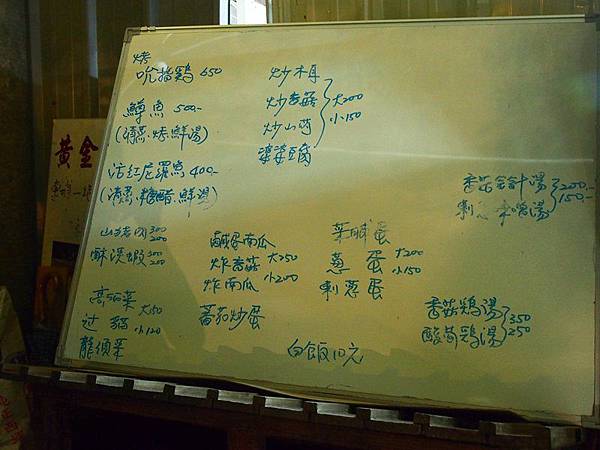 烤
吮指鷄 650
鱒魚 500-
(清蒸.烤.鮮湯)
活紅尼羅魚 400-
(清蒸.糖醋.鮮湯)
山豬肉 300
200
酥溪蝦 300
200
高麗菜
过貓
龍須菜
大150
小120
炒木耳
炒香菇
炒山苏
婆婆豆腐
大200
小150
鹹蛋南瓜
炸香菇
炸南瓜
大250
小200
蕃茄炒蛋
菜脯蛋
蔥蛋
刺蔥蛋
大200
小150
白飯10元
香菇
湯
刺蔥
湯
200-
150-
香菇鷄湯
酸筍鷄湯
350
250
黃金